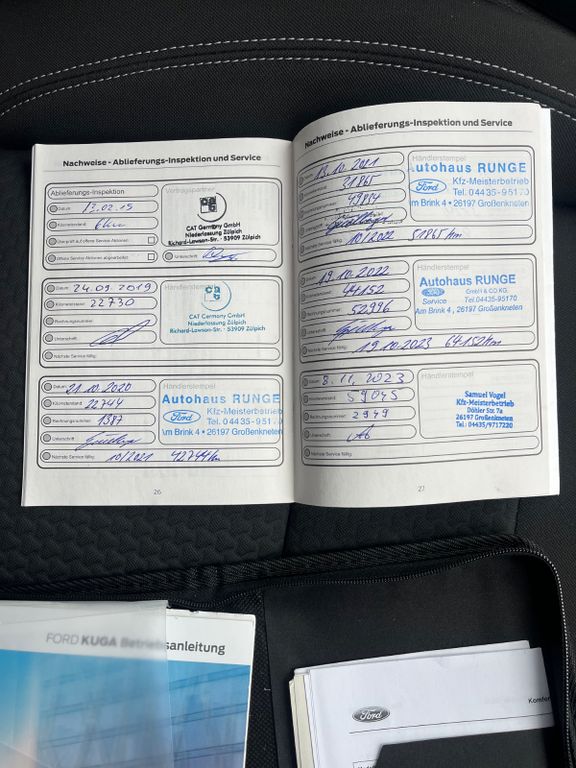 Nachweise - Ablieferungs-Inspektion und Service
Ablieferungs-Inspektion
Datum 13.02.19
Kilometerstand 6km
Überprüft Auf offene Service-Aktionen
Offene Service-Aktionen abgearbeitet
Vertragspartner
CAT Germany GmbH
Niederlassung Zülpich
Richard-Lawson-Str. · 53909 Zülpich
Unterschrift
Datum 24.09.2019
Kilometerstand 22730
Rechnungsnummer
Unterschrift
Nächste Service fällig:
Händlerstempel
CAT Germany GmbH
Niederlassung Zülpich
Richard-Lawson-Str. · 53909 Zülpich
Datum 21.10.2020
Kilometerstand 22744
Rechnungsnummer 1387
Unterschrift
Nächste Service fällig: 10/2021 42744km
Händlerstempel
Autohaus RUNGE
Ford Kfz-Meisterbetrieb
Tel. 04435-95170
Am Brink 4 • 26197 Großenkneten
26
Nachweise - Ablieferungs-Inspektion und Service
Datum 13.10.2021
Kilometerstand 31865
Rechnungsnummer 49884
Unterschrift
Nächste Service fällig: 10/2022 51865km
Händlerstempel
Autohaus RUNGE
Ford Kfz-Meisterbetrieb
Tel. 04435-95170
Am Brink 4 • 26197 Großenkneten
Datum 19.10.2022
Kilometerstand 44152
Rechnungsnummer 52996
Unterschrift
Nächste Service fällig: 19.10.2023 64152km
Händlerstempel
Autohaus RUNGE
Ford GmbH & CO KG
Service Tel.04435-95170
Am Brink 4, 26197 Großenkneten
Datum 8.11.2023
Kilometerstand 59045
Rechnungsnummer 2949
Unterschrift
Nächste Service fällig:
Händlerstempel
Samuel Vogel
Kfz-Meisterbetrieb
Döhler Str. 7a
26197 Großenkneten
Tel.: 04435/9717220
27
FORD KUGA Betriebsanleitung
Ford